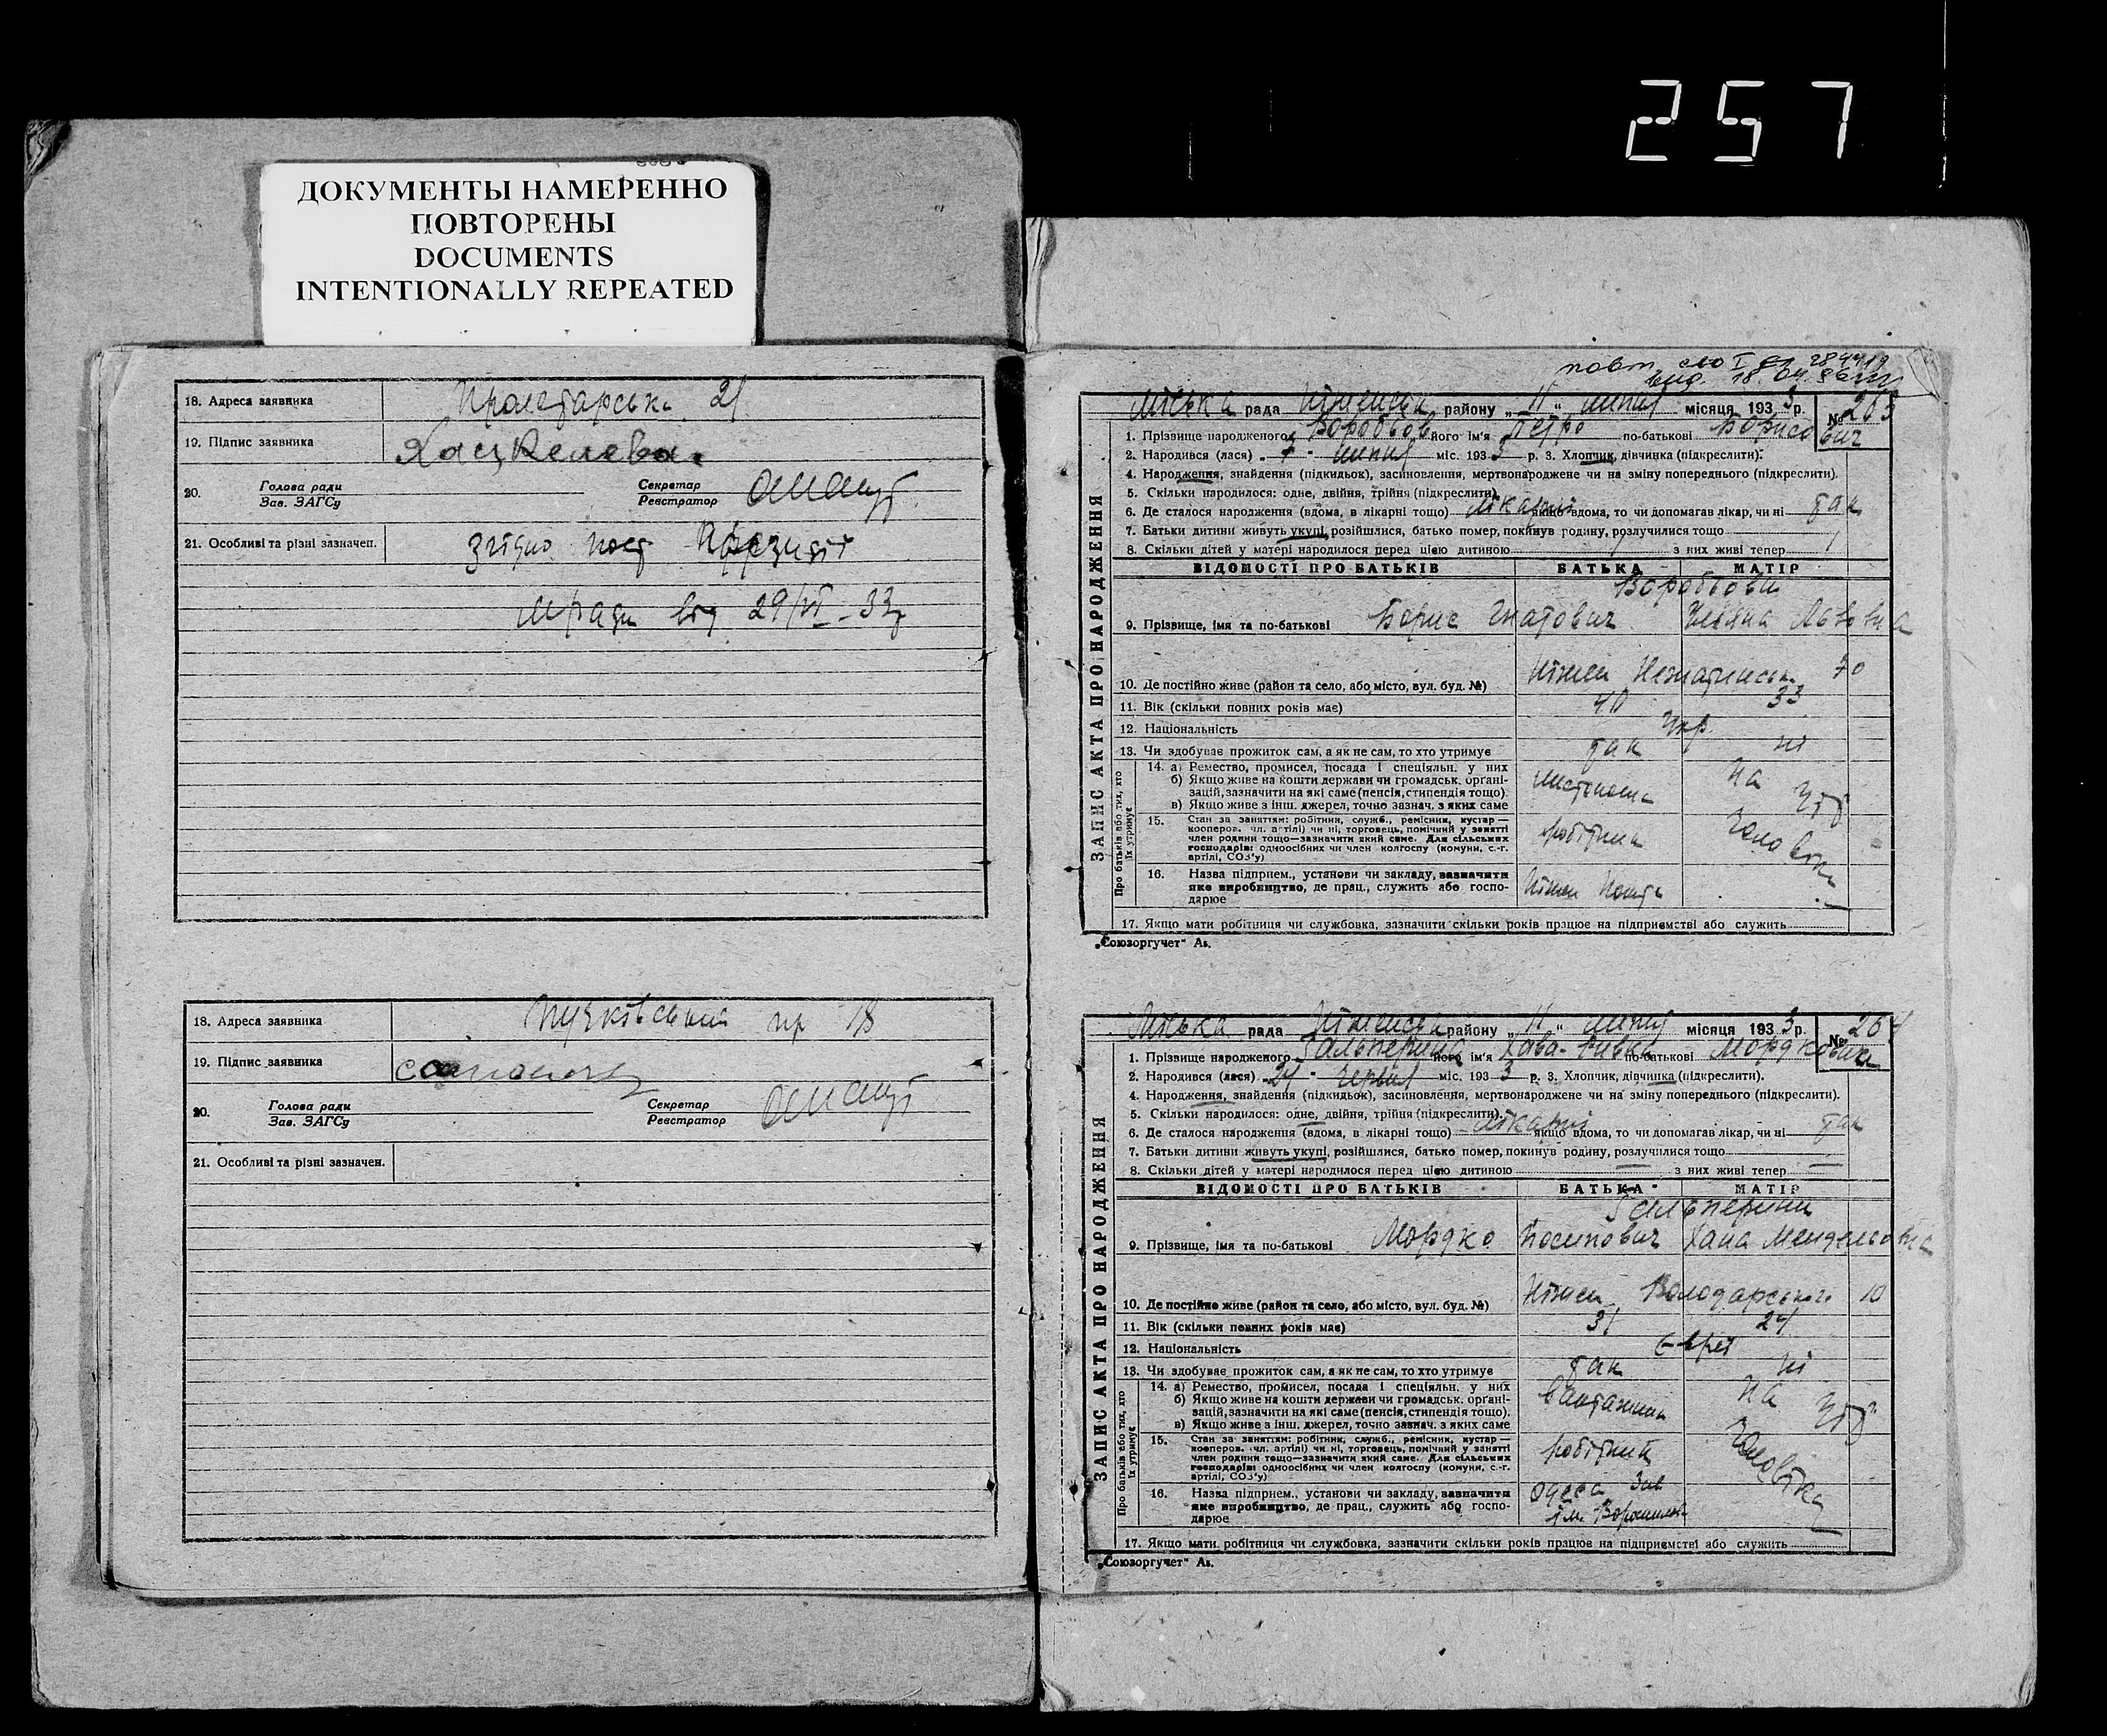 257
ДОКУМЕНТЫ НАМЕРЕННО
ПОВТОРЕНЫ
DOCUMENTS
INTENTIONALLY REPEATED
18. Адреса заявника Пролетарськ 21
19. Підпис заявника Хацкелева
20. Голова ради Секретар
Зав. ЗАГСу Реєстратор
21. Особливі та різні зазначен. Згідно пост Президії
м/ради від 29/VI - 33 р
18. Адреса заявника пр 18
19. Підпис заявника
20. Голова ради Секретар
Зав. ЗАГСу Реєстратор
21. Особливі та різні зазначен.
повт. сво I
вид. 18.04.86
Міська рада Ніженськ району „11“ липня місяця 1933 р. № 263
ЗАПИС АКТА ПРО НАРОДЖЕННЯ
1. Прізвище народженого Воробьов його ім'я Петро по-батькові Борисович
2. Народився (лася) 7 липня міс. 1933 р. 3. Хлопчик, дівчинка (підкреслити).
4. Народження, знайдення (підкидьок), засиновлення, мертвонароджене чи на зміну попереднього (підкреслити).
5. Скільки народилося: одне, двійня, трійня (підкреслити).
6. Де сталося народження (вдома, в лікарні тощо) лікарні якщо вдома, то чи допомагав лікар, чи ні так
7. Батьки дитини живуть укупі, розійшлися, батько помер, покинув родину, розлучилися тощо
8. Скільки дітей у матері народилося перед цією дитиною 1 з них живі тепер 1
ВІДОМОСТІ ПРО БАТЬКІВ БАТЬКА МАТІР
Воробьови
9. Прізвище, імя та по-батькові Борис Гнатович Львовна
10. Де постійно живе (район та село, або місто, вул. буд. №) Ніжен 70
11. Вік (скільки повних років має) 40 33
12. Національність Укр.
13. Чи здобуває прожиток сам, а як не сам, то хто утримує так ні
Про батьків або тих, хто їх утримує
14. а) Ремество, промисел, посада і спеціяльн. у них листоноша на утр
б) Якщо живе на кошти держави чи громадськ. органі-
зацій, зазначити на які саме (пенсія, стипендія тощо).
в) Якщо живе з інш. джерел, точно зазнач. з яких саме
15. Стан за заняттям: робітник, служб., ремісник, кустар— робітник чоловіка
кооперов. чл. артілі) чи ні, торговець, помічний у занятті
член родини тощо—зазначити який саме. Для сільських
господарів: одноосібних чи член колгоспу (комуни, с.-г.
артілі, СОЗ'у)
16. Назва підприєм., установи чи закладу, зазначити Ніжен Пошта
яке виробництво, де прац., служить або госпо-
дарює
17. Якщо мати робітниця чи службовка, зазначити скільки років працює на підприємстві або служить
„Союзоргучет“ Аь.
Міська рада Ніженськ району „11“ липня місяця 1933 р. № 264
ЗАПИС АКТА ПРО НАРОДЖЕННЯ
1. Прізвище народженого Гальперина його ім'я Хава-Ривка по-батькові Мордковна
2. Народився (лася) 21 червня міс. 1933 р. 3. Хлопчик, дівчинка (підкреслити).
4. Народження, знайдення (підкидьок), засиновлення, мертвонароджене чи на зміну попереднього (підкреслити).
5. Скільки народилося: одне, двійня, трійня (підкреслити).
6. Де сталося народження (вдома, в лікарні тощо) лікарні якщо вдома, то чи допомагав лікар, чи ні так
7. Батьки дитини живуть укупі, розійшлися, батько помер, покинув родину, розлучилися тощо
8. Скільки дітей у матері народилося перед цією дитиною — з них живі тепер —
ВІДОМОСТІ ПРО БАТЬКІВ БАТЬКА МАТІР
Гальперини
9. Прізвище, імя та по-батькові Мордко Йосипович Хана Мендельовна
10. Де постійно живе (район та село, або місто, вул. буд. №) Ніжен Володарського 10
11. Вік (скільки повних років має) 31 24
12. Національність Євреї
13. Чи здобуває прожиток сам, а як не сам, то хто утримує так ні
Про батьків або тих, хто їх утримує
14. а) Ремество, промисел, посада і спеціяльн. у них вантажник на утр
б) Якщо живе на кошти держави чи громадськ. органі-
зацій, зазначити на які саме (пенсія, стипендія тощо).
в) Якщо живе з інш. джерел, точно зазнач. з яких саме
15. Стан за заняттям: робітник, служб., ремісник, кустар— робітник чоловіка
кооперов. чл. артілі) чи ні, торговець, помічний у занятті
член родини тощо—зазначити який саме. Для сільських
господарів: одноосібних чи член колгоспу (комуни, с.-г.
артілі, СОЗ'у)
16. Назва підприєм., установи чи закладу, зазначити Одеса Зав
яке виробництво, де прац., служить або госпо- ім. Ворошилов
дарює
17. Якщо мати робітниця чи службовка, зазначити скільки років працює на підприємстві або служить
„Союзоргучет“ Аь.